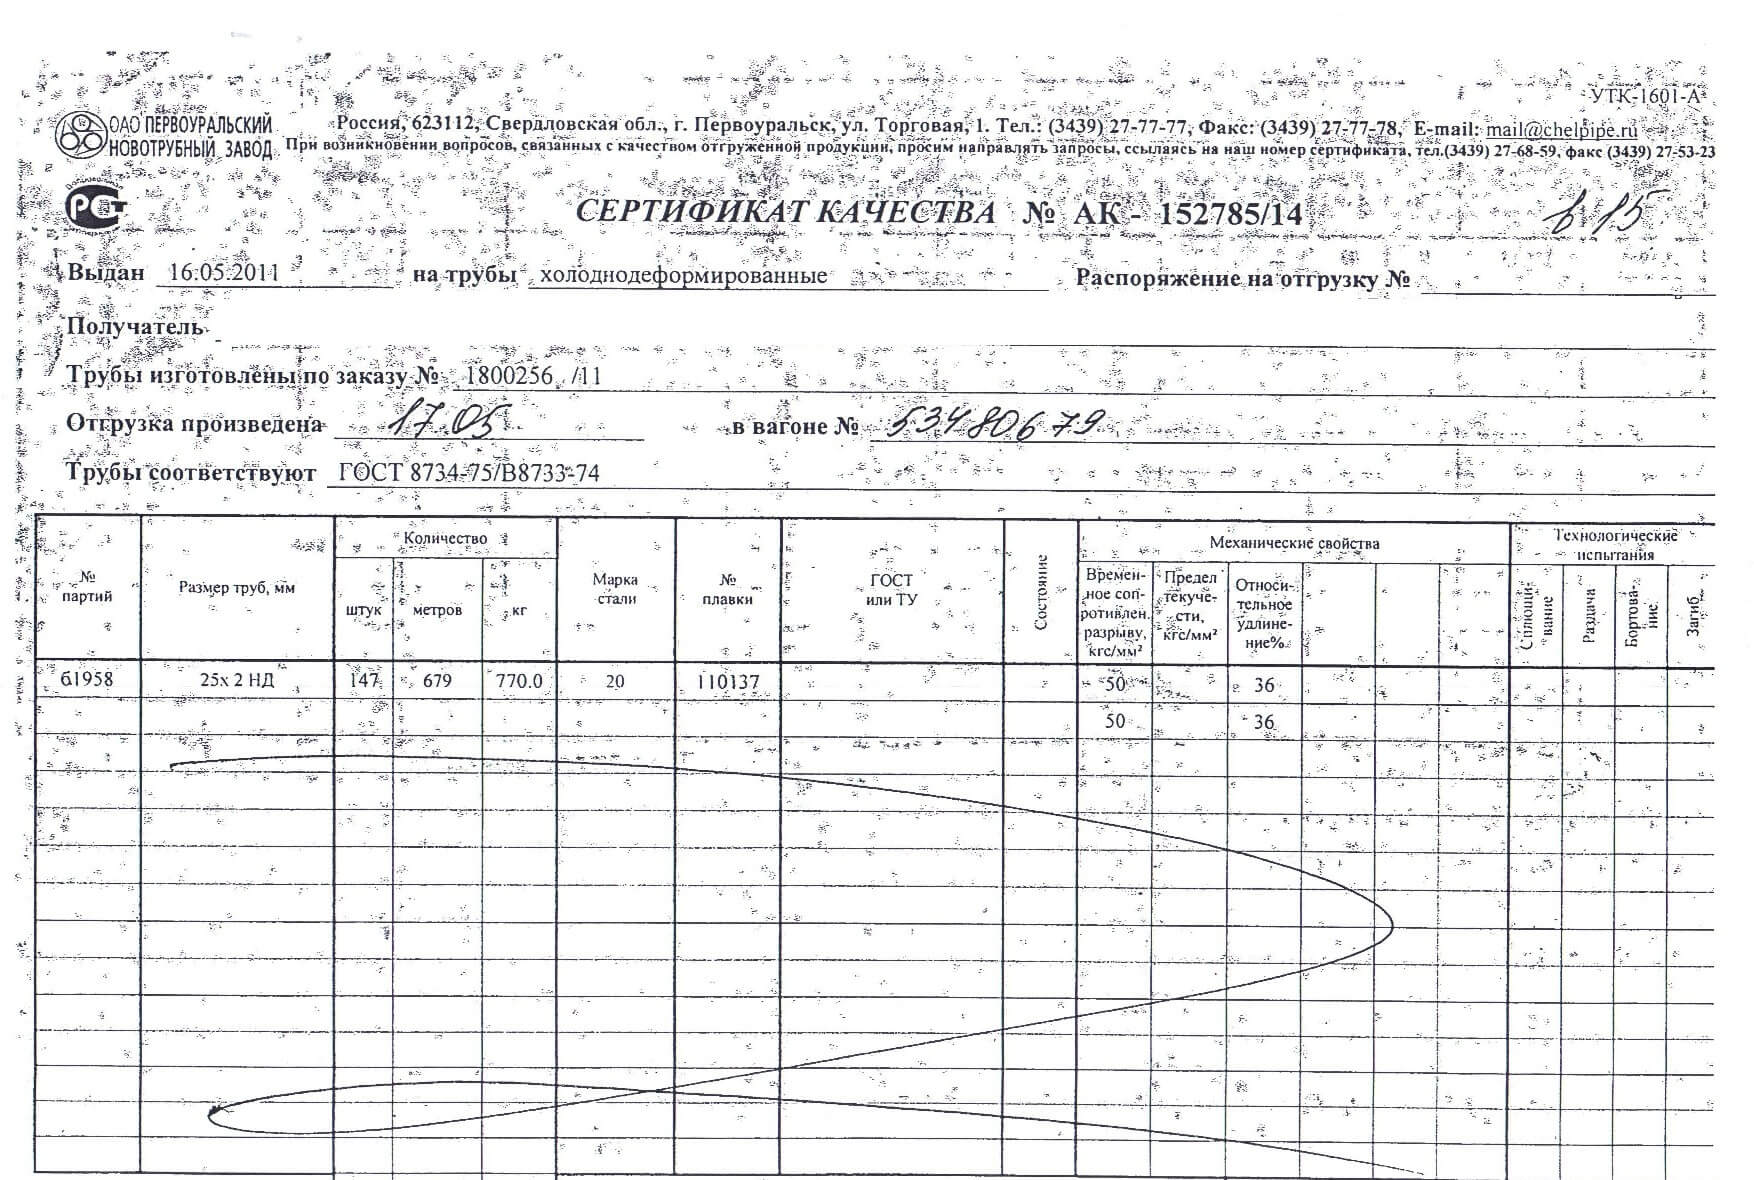 УТК-1601-А
ОАО ПЕРВОУРАЛЬСКИЙ
НОВОТРУБНЫЙ ЗАВОД
Россия, 623112, Свердловская обл., г. Первоуральск, ул. Торговая, 1. Тел.: (3439) 27-77-77, Факс: (3439) 27-77-78, E-mail: mail@chelpipe.ru
При возникновении вопросов, связанных с качеством отгруженной продукции, просим направлять запросы, ссылаясь на наш номер сертификата, тел.(3439) 27-68-59, факс (3439) 27-53-23
РСТ
СЕРТИФИКАТ КАЧЕСТВА № АК - 152785/14
Выдан 16.05.2011 на трубы холоднодеформированные Распоряжение на отгрузку №
Получатель
Трубы изготовлены по заказу № 1800256 /11
Отгрузка произведена 17.05 в вагоне № 53480679
Трубы соответствуют ГОСТ 8734-75/В8733-74
№ партий
Размер труб, мм
Количество
штук
метров
кг
Марка стали
№ плавки
ГОСТ или ТУ
Состояние
Механические свойства
Времен-
ное соп-
ротивлен.
разрыву,
кгс/мм²
Предел
текуче-
сти,
кгс/мм²
Относи-
тельное
удлине-
ние%
Технологические испытания
Сплющи-
вание
Раздача
Бортова-
ние
Загиб
61958 25х 2 НД 147 679 770.0 20 110137 50 36
50 36